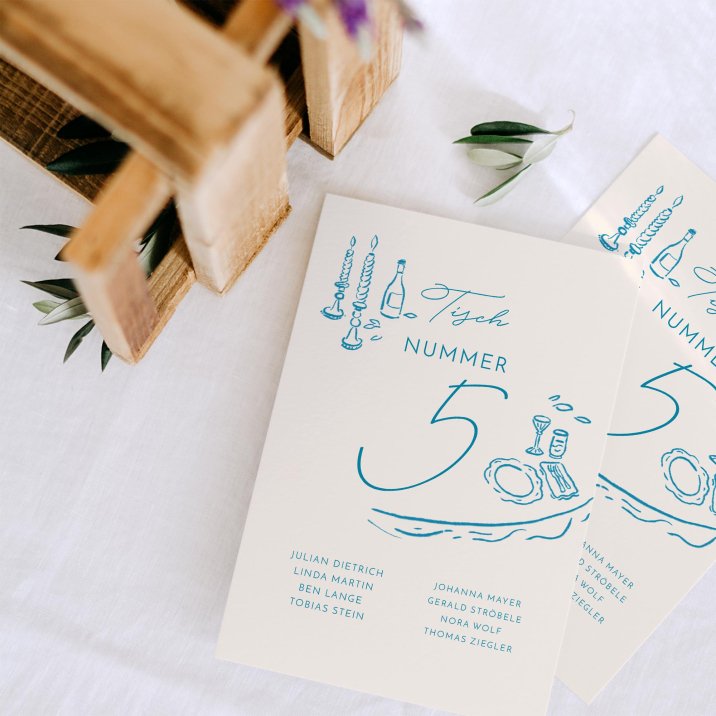 Tisch
NUMMER
5
JULIAN DIETRICH
LINDA MARTIN
BEN LANGE
TOBIAS STEIN
JOHANNA MAYER
GERALD STRÖBELE
NORA WOLF
THOMAS ZIEGLER
NUMME
5
ANNA MAYER
D STRÖBELE
WOLF
ZIEGLER